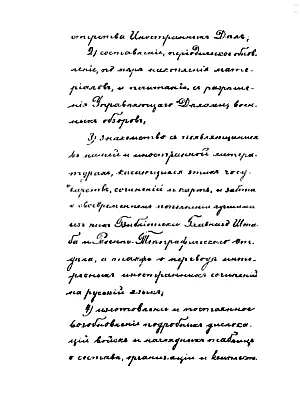 стерства Иностранных Дѣлъ;
2) составленіе, періодическое обнов-
леніе, по мѣрѣ накопленія мате-
ріаловъ, и печатаніе, съ разрѣше-
нія Управляющаго Дѣлами, воен-
ныхъ обзоровъ;
3) знакомство съ появляющимися
въ нашей и иностранной литера-
турахъ, касающимися этихъ госу-
дарствъ, сочиненій и картъ, и забота
о своевременномъ пополненіи лучшими
изъ нихъ Библіотеки Главнаго Шта-
ба и Военно-Топографическаго от-
дѣла, а также о переводѣ инте-
ресныхъ иностранныхъ сочиненій
на русскій языкъ;
4) изготовленіе и постоянное
возобновленіе подробныхъ дислока-
цій войскъ и наглядныхъ таблицъ
о составѣ, организаціи и